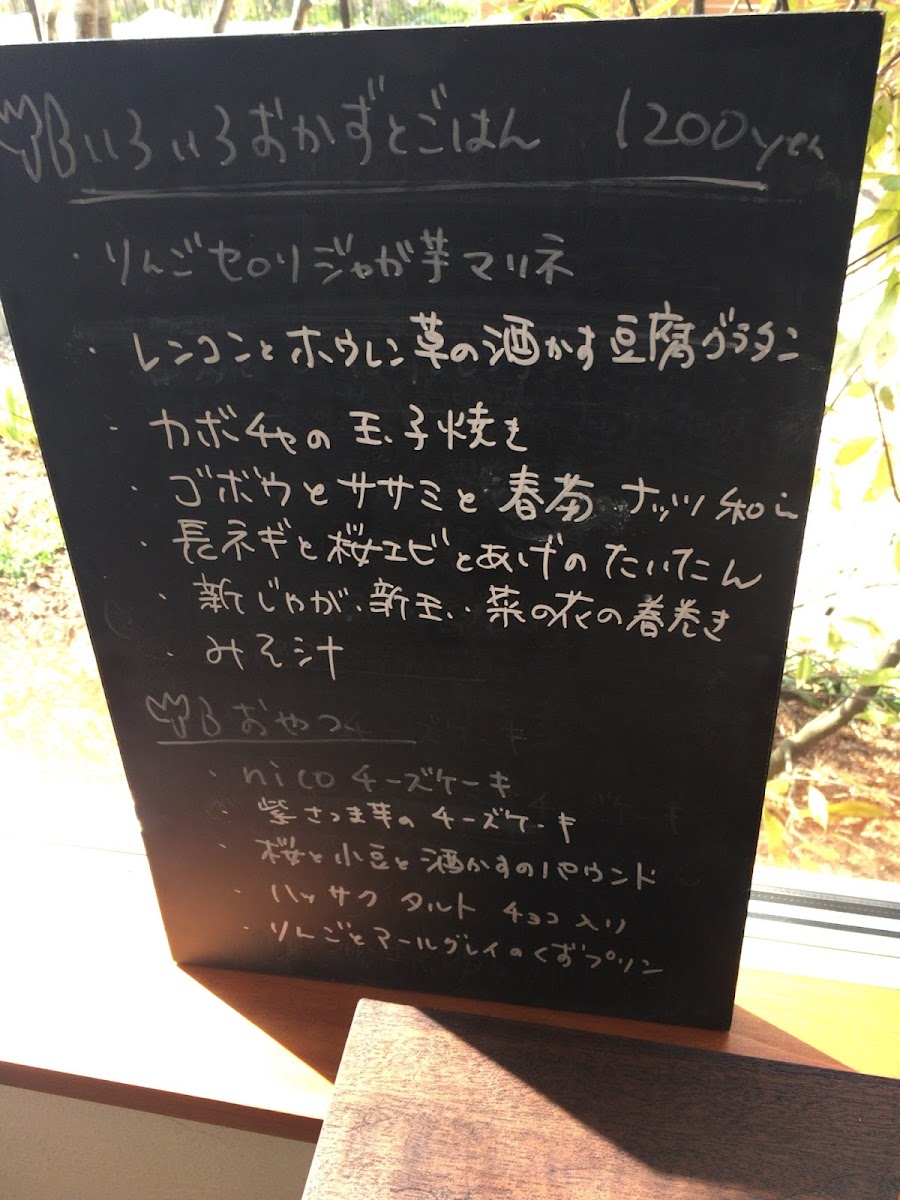 いろいろおかずとごはん 1200yen
・りんごセロリジャガ芋マリネ
・レンコンとホウレン草の酒かす豆腐グラタン
・カボチャの玉子焼き
・ゴボウとササミと春菊 ナッツ和え
・長ネギと桜エビとあげのたいたん
・新じゃが、新玉、菜の花の春巻き
・みそ汁
おやつ
・nicoチーズケーキ
・紫さつま芋のチーズケーキ
・桜と小豆と酒かすのパウンド
・ハッサク タルト チョコ入り
・りんごとアールグレイのくずプリン